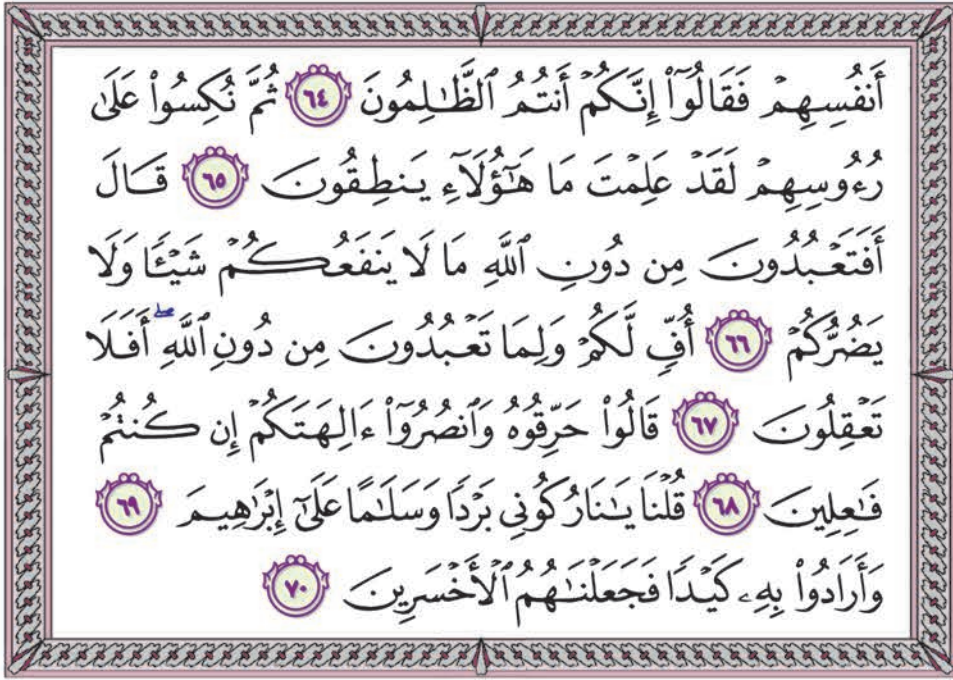 أَنفُسِهِمْ فَقَالُوٓا۟ إِنَّكُمْ أَنتُمُ ٱلظَّـٰلِمُونَ ٦٤ ثُمَّ نُكِسُوا۟ عَلَىٰ
رُءُوسِهِمْ لَقَدْ عَلِمْتَ مَا هَـٰٓؤُلَآءِ يَنطِقُونَ ٦٥ قَالَ
أَفَتَعْبُدُونَ مِن دُونِ ٱللَّهِ مَا لَا يَنفَعُكُمْ شَيْـًٔا وَلَا
يَضُرُّكُمْ ٦٦ أُفٍّ لَّكُمْ وَلِمَا تَعْبُدُونَ مِن دُونِ ٱللَّهِ ۖ أَفَلَا
تَعْقِلُونَ ٦٧ قَالُوا۟ حَرِّقُوهُ وَٱنصُرُوٓا۟ ءَالِهَتَكُمْ إِن كُنتُمْ
فَـٰعِلِينَ ٦٨ قُلْنَا يَـٰنَارُ كُونِى بَرْدًا وَسَلَـٰمًا عَلَىٰٓ إِبْرَٰهِيمَ ٦٩
وَأَرَادُوا۟ بِهِۦ كَيْدًا فَجَعَلْنَـٰهُمُ ٱلْأَخْسَرِينَ ٧٠